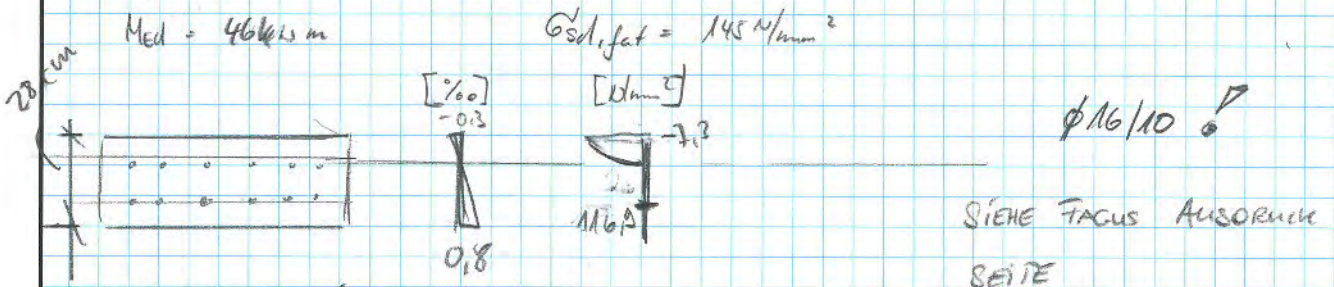 MEd = 46 kN m
σsd,fat = 145 N/mm²
28 cm
[‰]
[N/mm²]
-0.3
-7,3
ϕ16/10 !
116,9
0,8
SIEHE FAGUS AUSDRUCK
SEITE